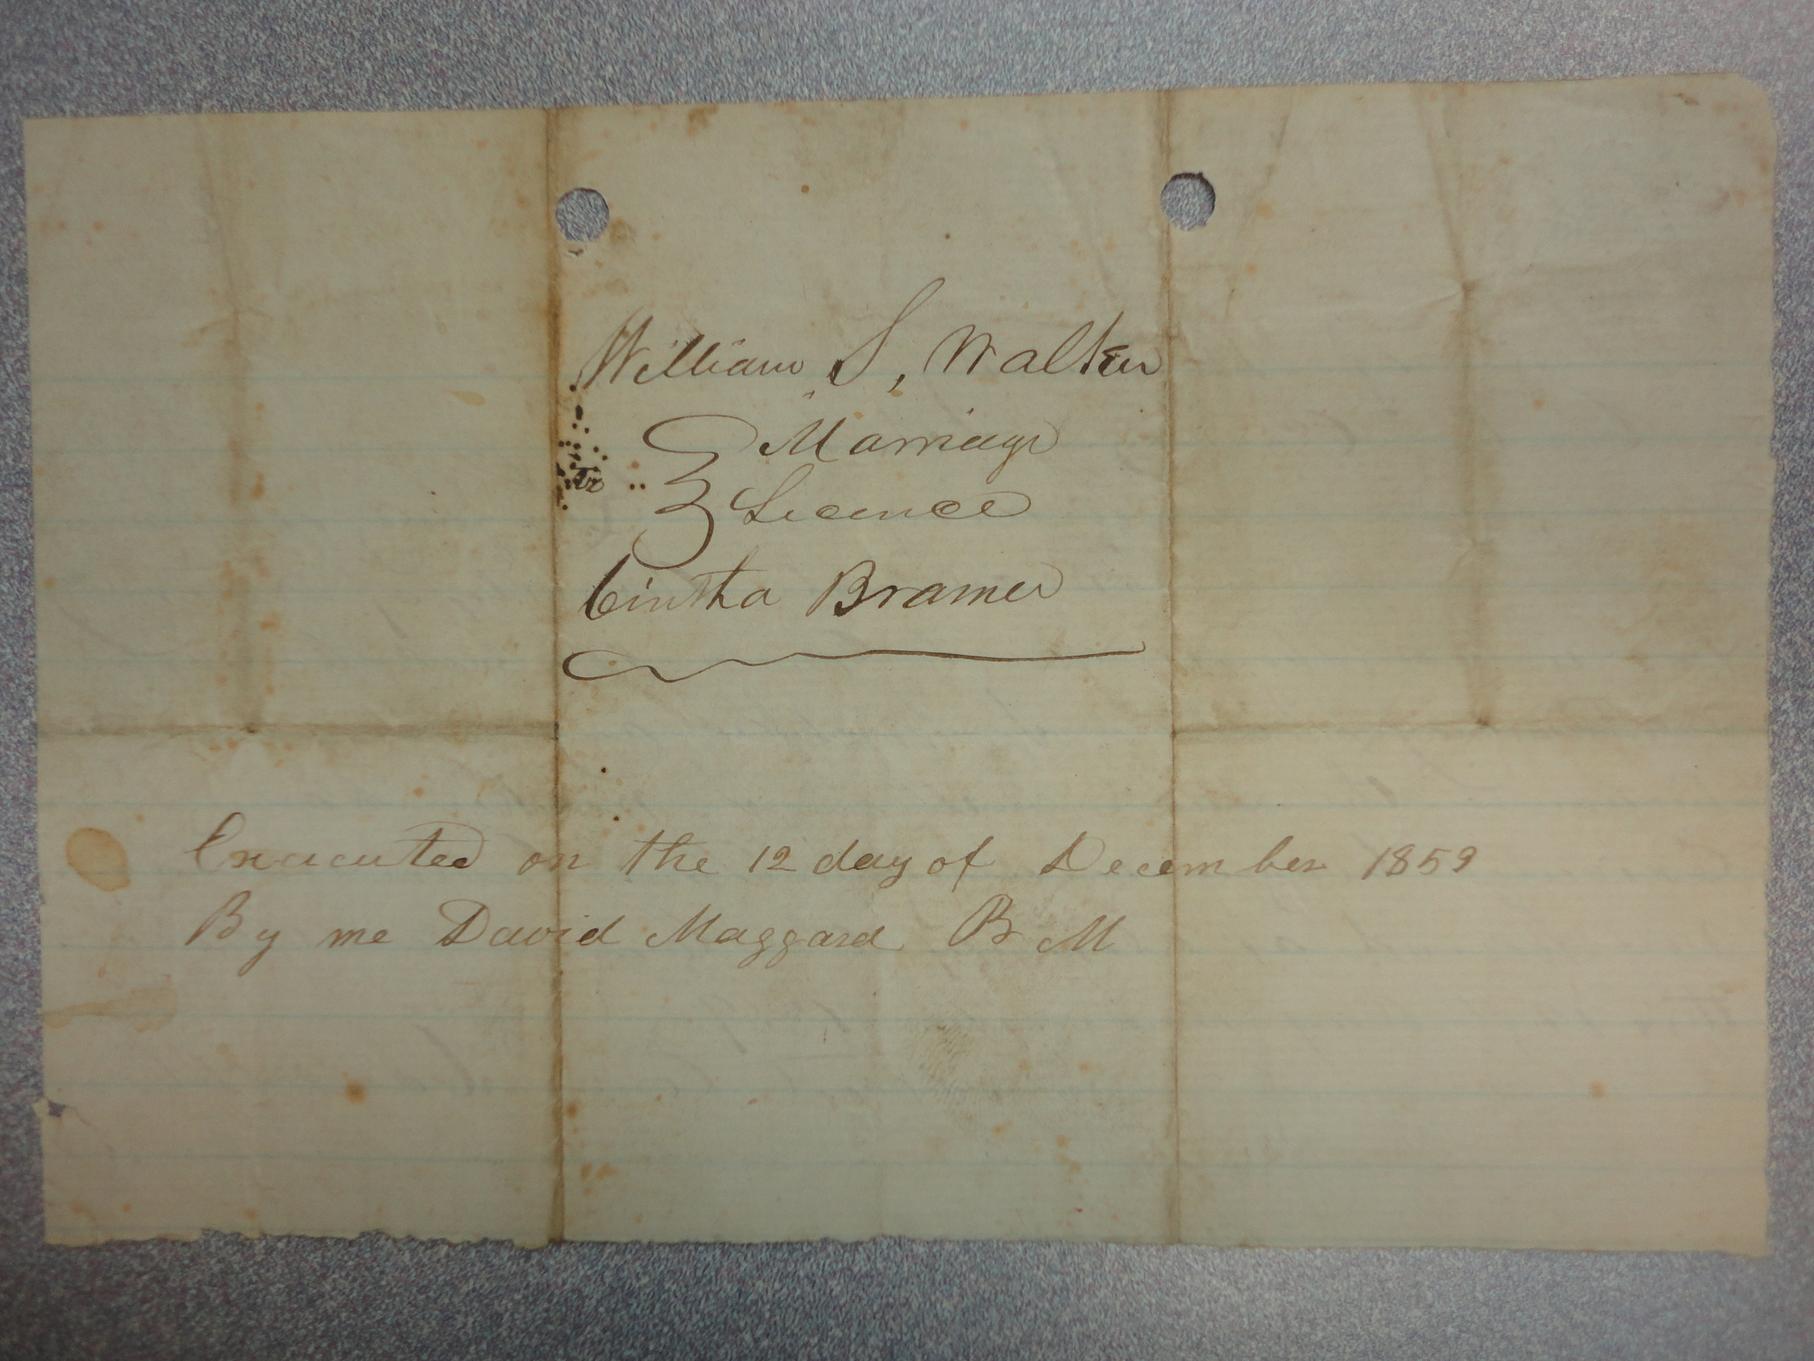 William S, Walker
Marriage
to
Licence
Cintha Bramer
Executed on the 12 day of December 1859
By me David Maggard B M